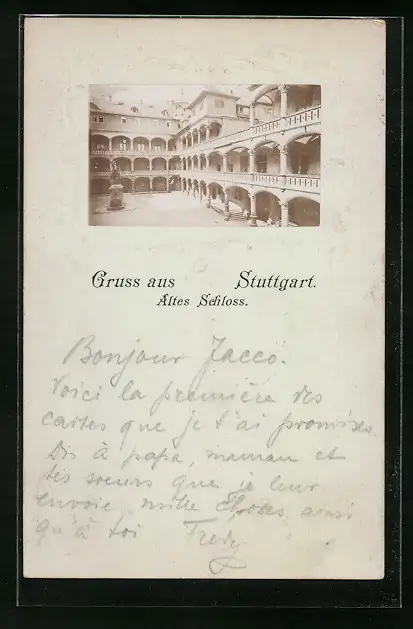 Gruss aus Stuttgart.
Altes Schloss.
Bonjour Jacco.
Voici la première des
cartes que je t'ai promises.
Dis à papa, maman et
tes soeurs que je leur
envoie mille choses ainsi
qu'à toi